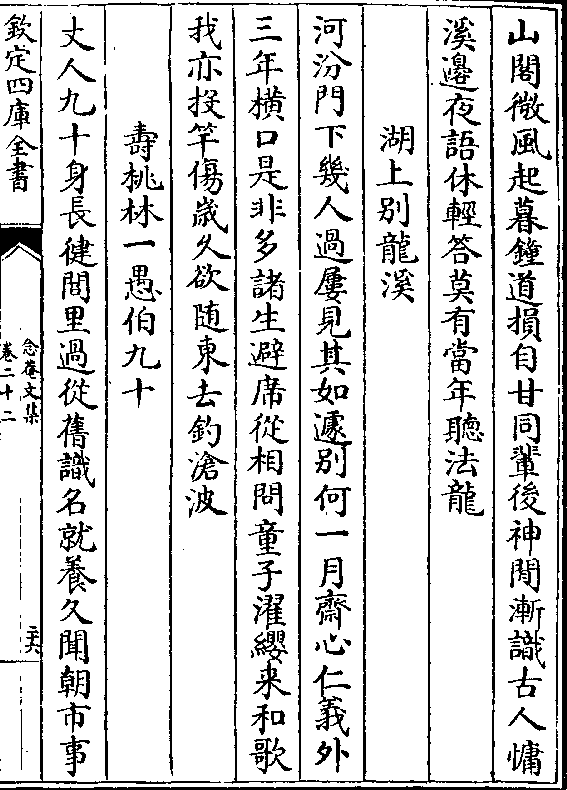 山閣微風起暮鐘道損自甘同輩後神閒漸識古人慵
溪邊夜語休輕答莫有當年聽法龍
湖上别龍溪
河汾門下幾人過屢見其如遽别何一月齋心仁義外
三年横口是非多諸生避席從相問童子濯纓来和歌
我亦投竿傷歲久欲随東去釣滄波
壽桃林一愚伯九十
丈人九十身長健閭里過從舊識名就養久聞朝市事
欽定四庫全書
念菴文集
卷二十二
二六